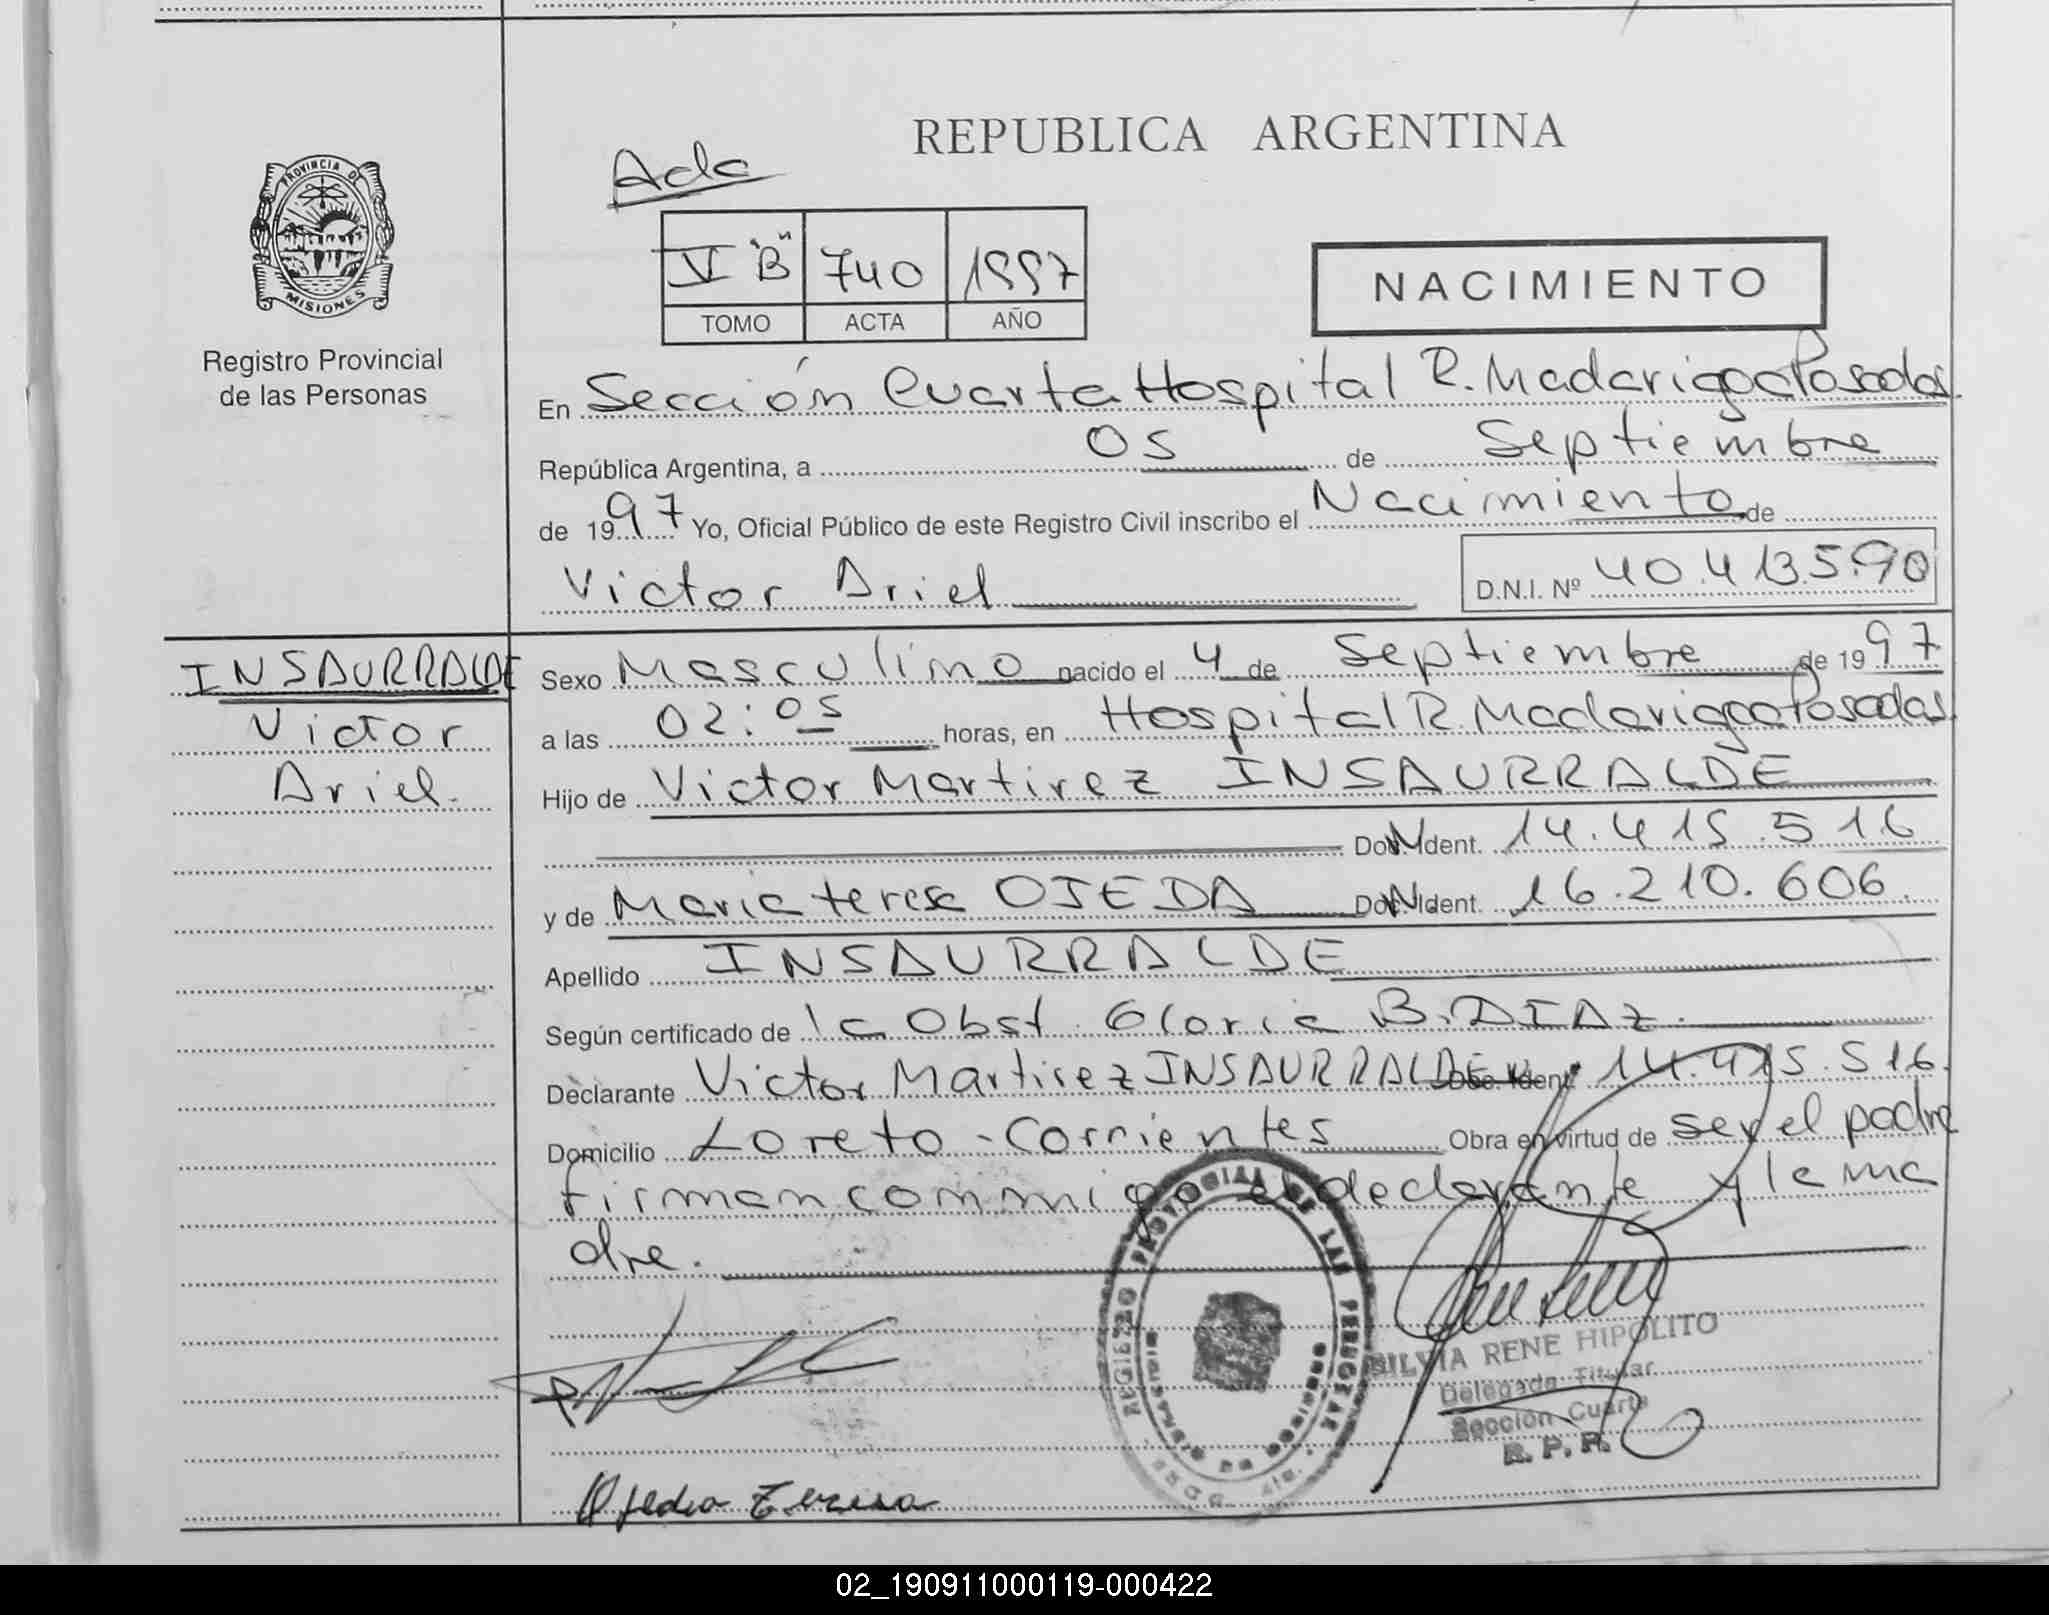 REPUBLICA ARGENTINA
PROVINCIA DE
MISIONES
Registro Provincial
de las Personas
V "B" 740 1997
TOMO ACTA AÑO
NACIMIENTO
En Sección Cuarta Hospital R. Madariaga Posadas.
República Argentina, a 05 de Septiembre
de 1997 Yo, Oficial Público de este Registro Civil inscribo el Nacimiento de
Victor Ariel D.N.I. Nº 40.413.590
INSAURRALDE
Victor
Ariel.
Sexo Masculino nacido el 4 de Septiembre de 1997
a las 02:05 horas, en Hospital R. Madariaga Posadas.
Hijo de Victor Martirez INSAURRALDE
Doc. Ident. 14.415.516
y de Maria teresa OJEDA Doc. Ident. 16.210.606.
Apellido INSAURRALDE
Según certificado de la Obst. Gloria B. DIAZ.
Declarante Victor Martirez INSAURRALDE Doc. Ident. 14.415.516.
Domicilio Loreto - Corrientes Obra en virtud de ser el padre
firman conmigo el declarante y la ma
dre.
REGISTRO PROVINCIAL DE LAS PERSONAS
SILVIA RENE HIPOLITO
Delegada Titular
Sección Cuarta
R. P. P.
Ojeda Teresa
02_190911000119-000422